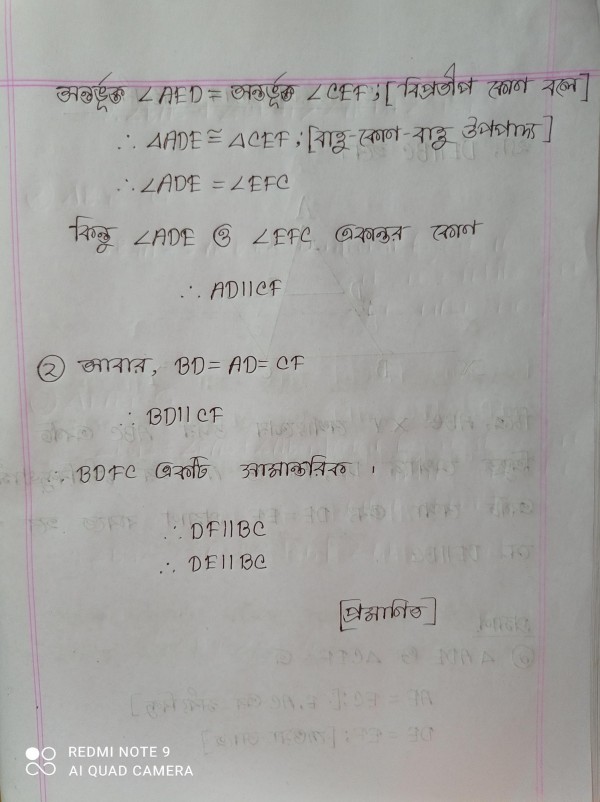 অন্তর্ভূক্ত ∠AED = অন্তর্ভূক্ত ∠CEF ; [বিপ্রতীপ কোণ বলে]
∴ △ADE ≅ △CEF ; [বাহু-কোণ-বাহু উপপাদ্য]
∴ ∠ADE = ∠EFC
কিন্তু ∠ADE ও ∠EFC একান্তর কোণ
∴ AD||CF
② আবার, BD = AD = CF
∴ BD||CF
BDFC একটি সামান্তরিক ।
∴ DF||BC
∴ DE||BC
[প্রমাণিত]
REDMI NOTE 9
AI QUAD CAMERA